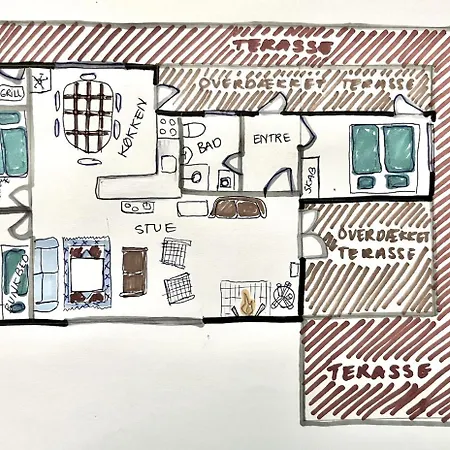 TERASSE
OVERDÆKKET TERASSE
GRILL
KØKKEN
BAD
ENTRE
SKAB
STUE
OVERDÆKKET
TERASSE
TERASSE